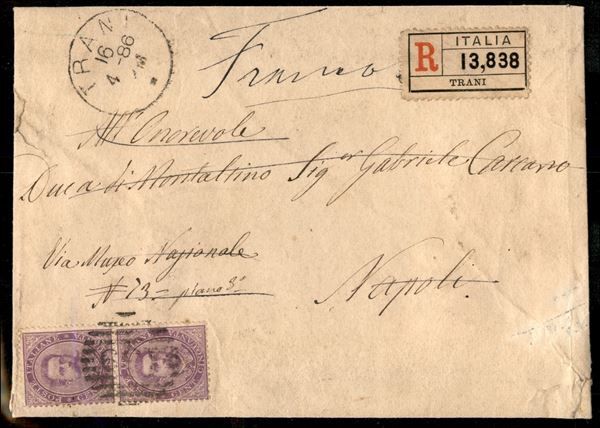 TRANI
16
4 - 86
M
Franco
R
ITALIA
13,838
TRANI
All'Onorevole
Duca di Montaltino Sigor Gabriele Carcano
Via Museo Nazionale
N 23 piano 3°
Napoli
POSTE ITALIANE